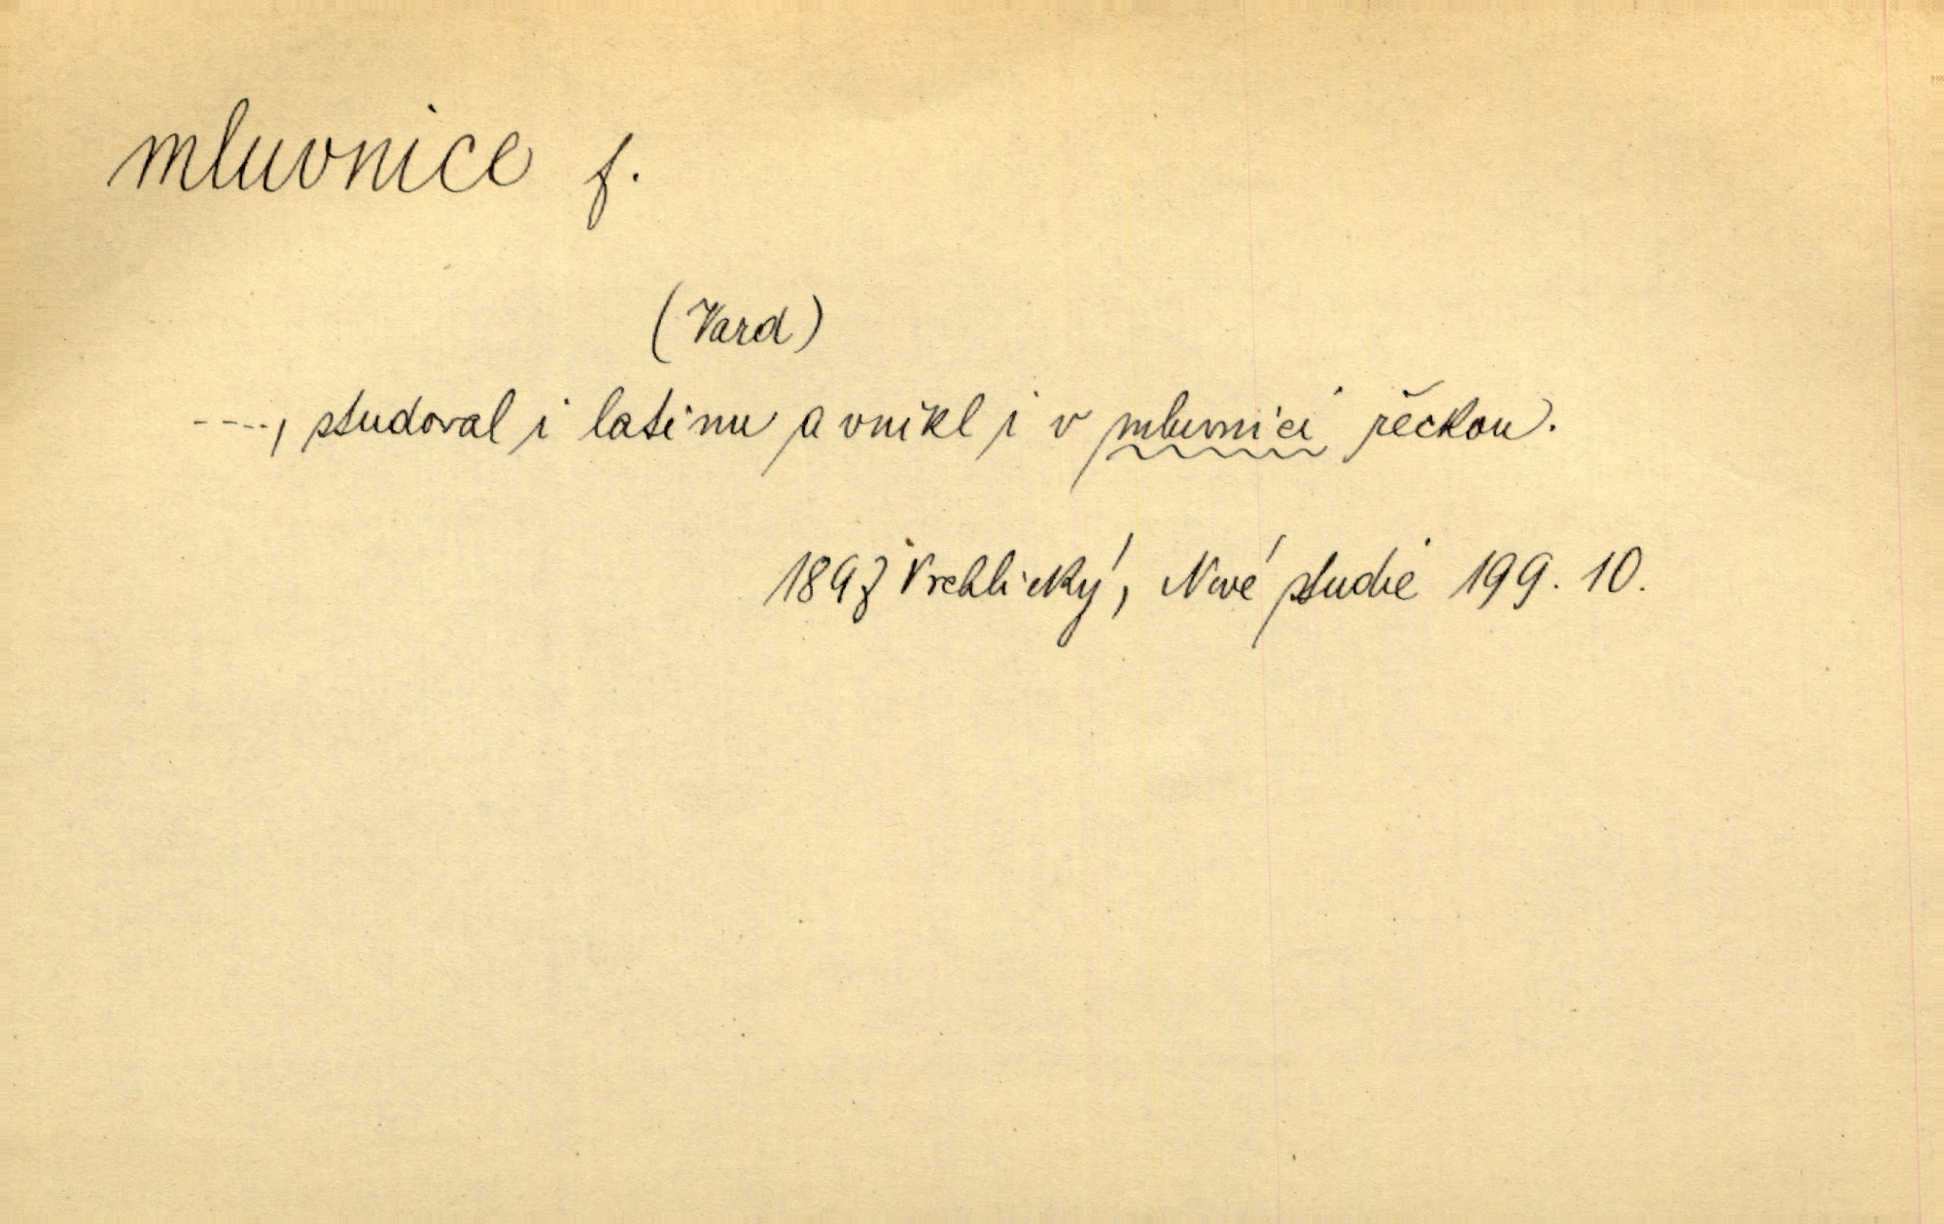 mluvnice f.
(Vard)
----, studoval i latinu a vnikl i v mluvnici řeckou.
1897 Vrchlický, Nové studie 199. 10.